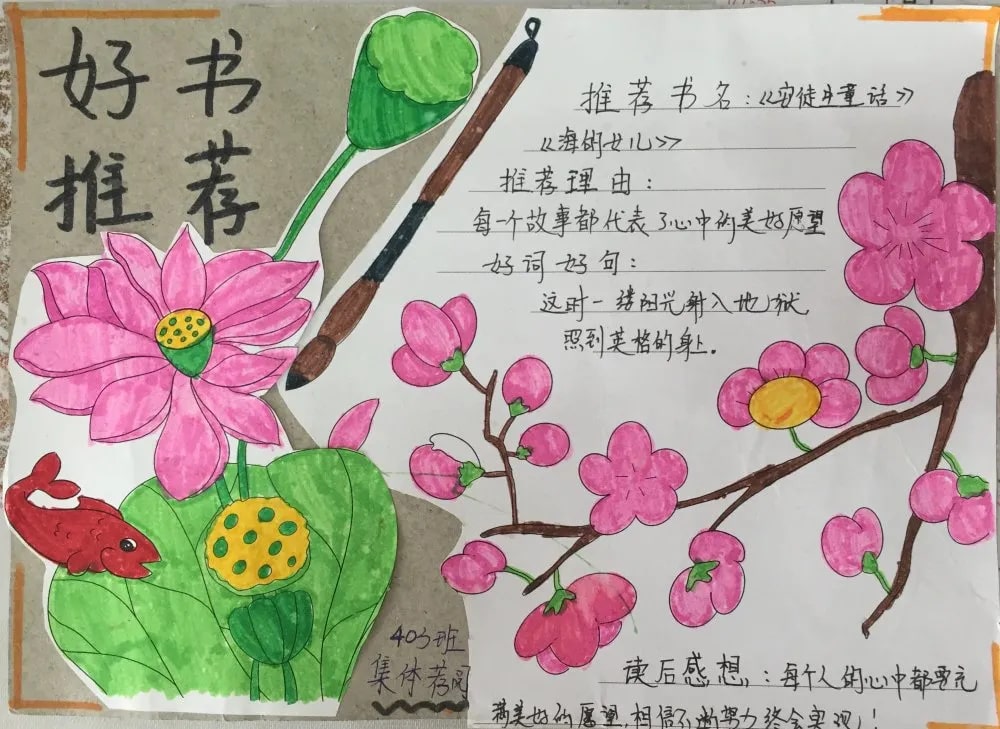 好书
推荐
推荐书名:《安徒生童话》
《海的女儿》
推荐理由:
每一个故事都代表了心中的美好愿望
好词好句:
这时一缕阳光射入地狱
照到英格的身上.
403班
集体荐阅
读后感想,:每个人的心中都要充
满美好的愿望,相信不断努力终会实现!